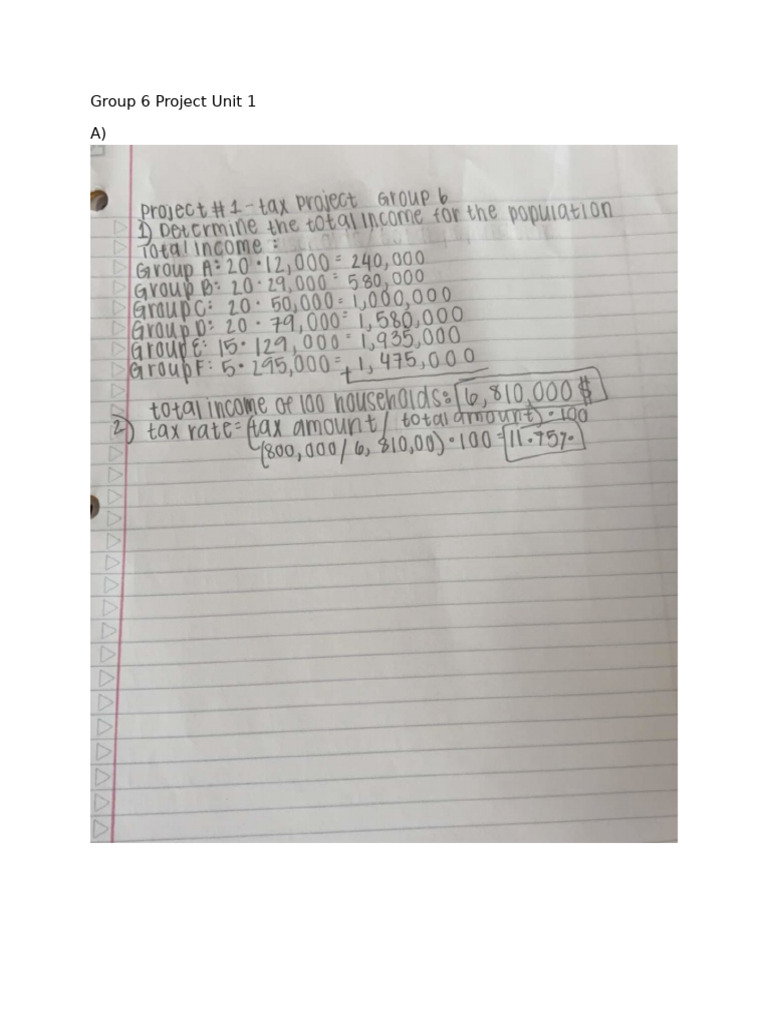 Group 6 Project Unit 1
A)
Project #1 - tax project Group 6
1) Determine the total income for the population
Total income:
Group A: 20 · 12,000 = 240,000
Group B: 20 · 29,000 = 580,000
Group C: 20 · 50,000 = 1,000,000
Group D: 20 · 79,000 = 1,580,000
Group E: 15 · 129,000 = 1,935,000
Group F: 5 · 295,000 = + 1,475,000
total income of 100 households: 6,810,000 $
2) tax rate = (tax amount / total amount) · 100
(800,000 / 6,810,00) · 100 = 11.75%